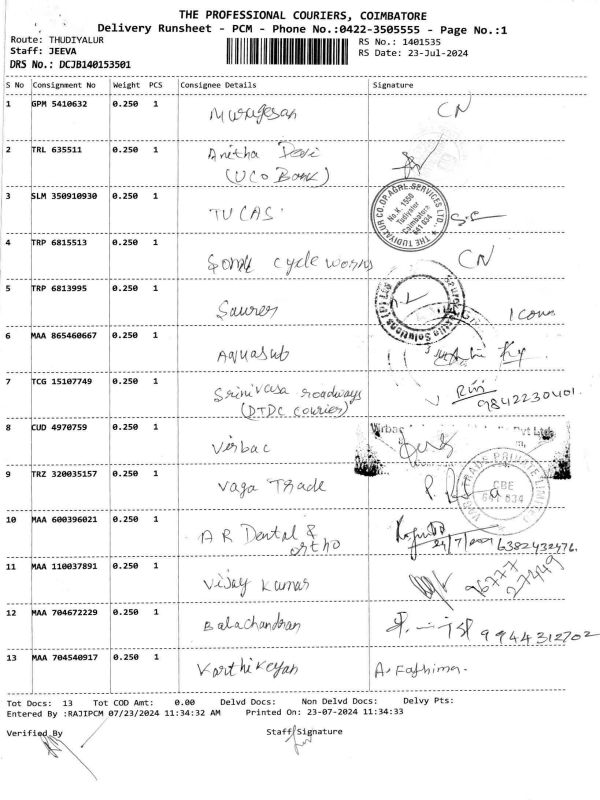 THE PROFESSIONAL COURIERS, COIMBATORE
Delivery Runsheet - PCM - Phone No.:0422-3505555 - Page No.:1
Route: THUDIYALUR RS No.: 1401535
Staff: JEEVA RS Date: 23-Jul-2024
DRS No.: DCJB140153501
S No Consignment No Weight PCS Consignee Details Signature
1 GPM 5410632 0.250 1 Murugesan CN
2 TRL 635511 0.250 1 Anitha Devi
(UCO Bank)
3 SLM 350910930 0.250 1 TUCAS
THE TUDIYALUR CO.OP.AGRL.SERVICES LTD.,
No.K. 1550
Tudiyalur
Coimbatore
641 034
4 TRP 6815513 0.250 1 cycle works CN
5 TRP 6813995 0.250 1 Saurer
Solutions
6 MAA 865460667 0.250 1 Aquasub
7 TCG 15107749 0.250 1 Srinivasa roadways
(DTDC courier) 9842230401.
8 CUD 4970759 0.250 1 Virbac
Virbac Pvt Ltd
9 TRZ 320035157 0.250 1 Vaga Trade P.
TRADE PRIVATE LIMITED
CBE
641 034
10 MAA 600396021 0.250 1 A R Dental &
ortho 6382432476.
11 MAA 110037891 0.250 1 Vijay kumar 96777
27449
12 MAA 704672229 0.250 1 Balachandran 9944312702
13 MAA 704540917 0.250 1 Karthikeyan A. Fathima.
Tot Docs: 13 Tot COD Amt: 0.00 Delvd Docs: Non Delvd Docs: Delvy Pts:
Entered By :RAJIPCM 07/23/2024 11:34:32 AM Printed On: 23-07-2024 11:34:33
Verified By Staff Signature